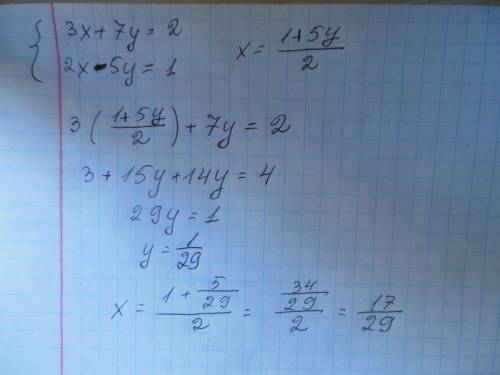 3x+7y=2
2x-5y=1
x=(1+5y)/2
3((1+5y)/2)+7y=2
3+15y+14y=4
29y=1
y=1/29
x=(1+5/29)/2=(34/29)/2=17/29